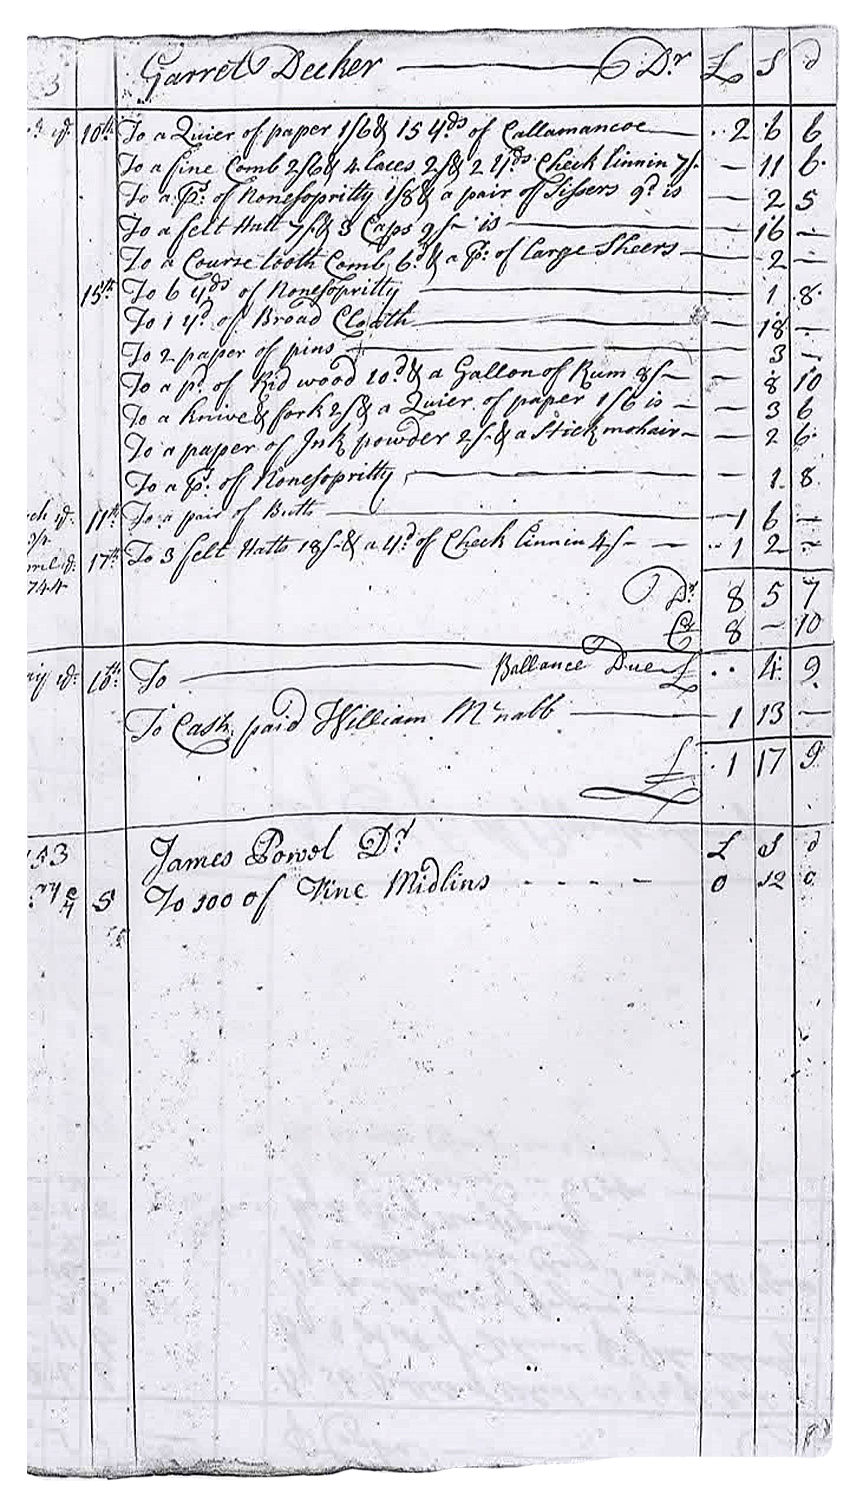 3 Garret Decker Dr £ S d
10th To a Quier of paper 1/6 & 15 yds of Callamancoe 2 6 6
To a fine Comb 2/6 & 4 laces 2/ & 2 yds Check linnin 7/- — 11 6
To a Ps. of Nonesopritty 1/8 & a pair of Sissers 9d is — 2 5
To a felt Hatt 7/ & 3 Caps 9/- is — 16 —
To a Course tooth Comb 6d & a Pr. of large Sheers — 2 —
15th To 6 yds of Nonesopritty — 1 8
To 1 yd of Broad Cloath 18 —
To 2 paper of pins 3 —
To a pd. of Rid wood 10d & a Gallon of Rum 8/- — 8 10
To a Knive & fork 2/ & a Quier of paper 1/6 is — 3 6
To a paper of Ink powder 2/- & a Stick mohair — 2 6
To a Ps. of Nonesopritty — 1 8
11th To a pair of Butts 1 6 —
17th To 3 felt Hatts 18/- & a yd of Check linnin 4/- 1 2 —
744
Dr 8 5 7
Cr 8 — 10
10th To Ballance Due £ 4 9
To Cash paid William Mcnabb 1 13 —
£ 1 17 9
53 James Powel Dr £ S d
5 To 100 of Fine Midlins 0 12 0